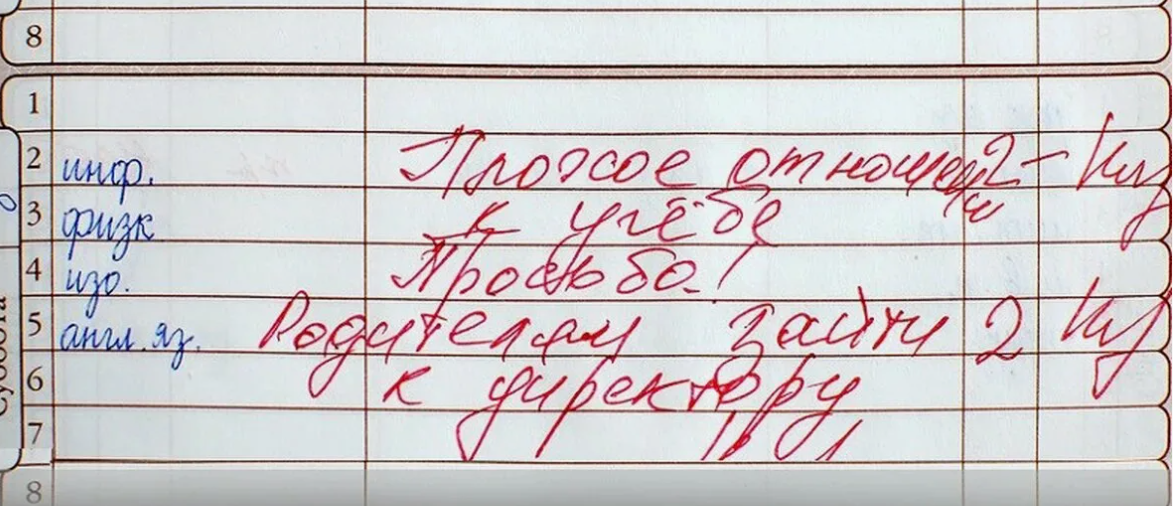 8
1
2 инф. Плохое отношен 2-
ие
3 физк к учёбе
4 изо. Просьба!
Суббота
5 англ. яз. Родителям зайти 2
6 к директору
7
8